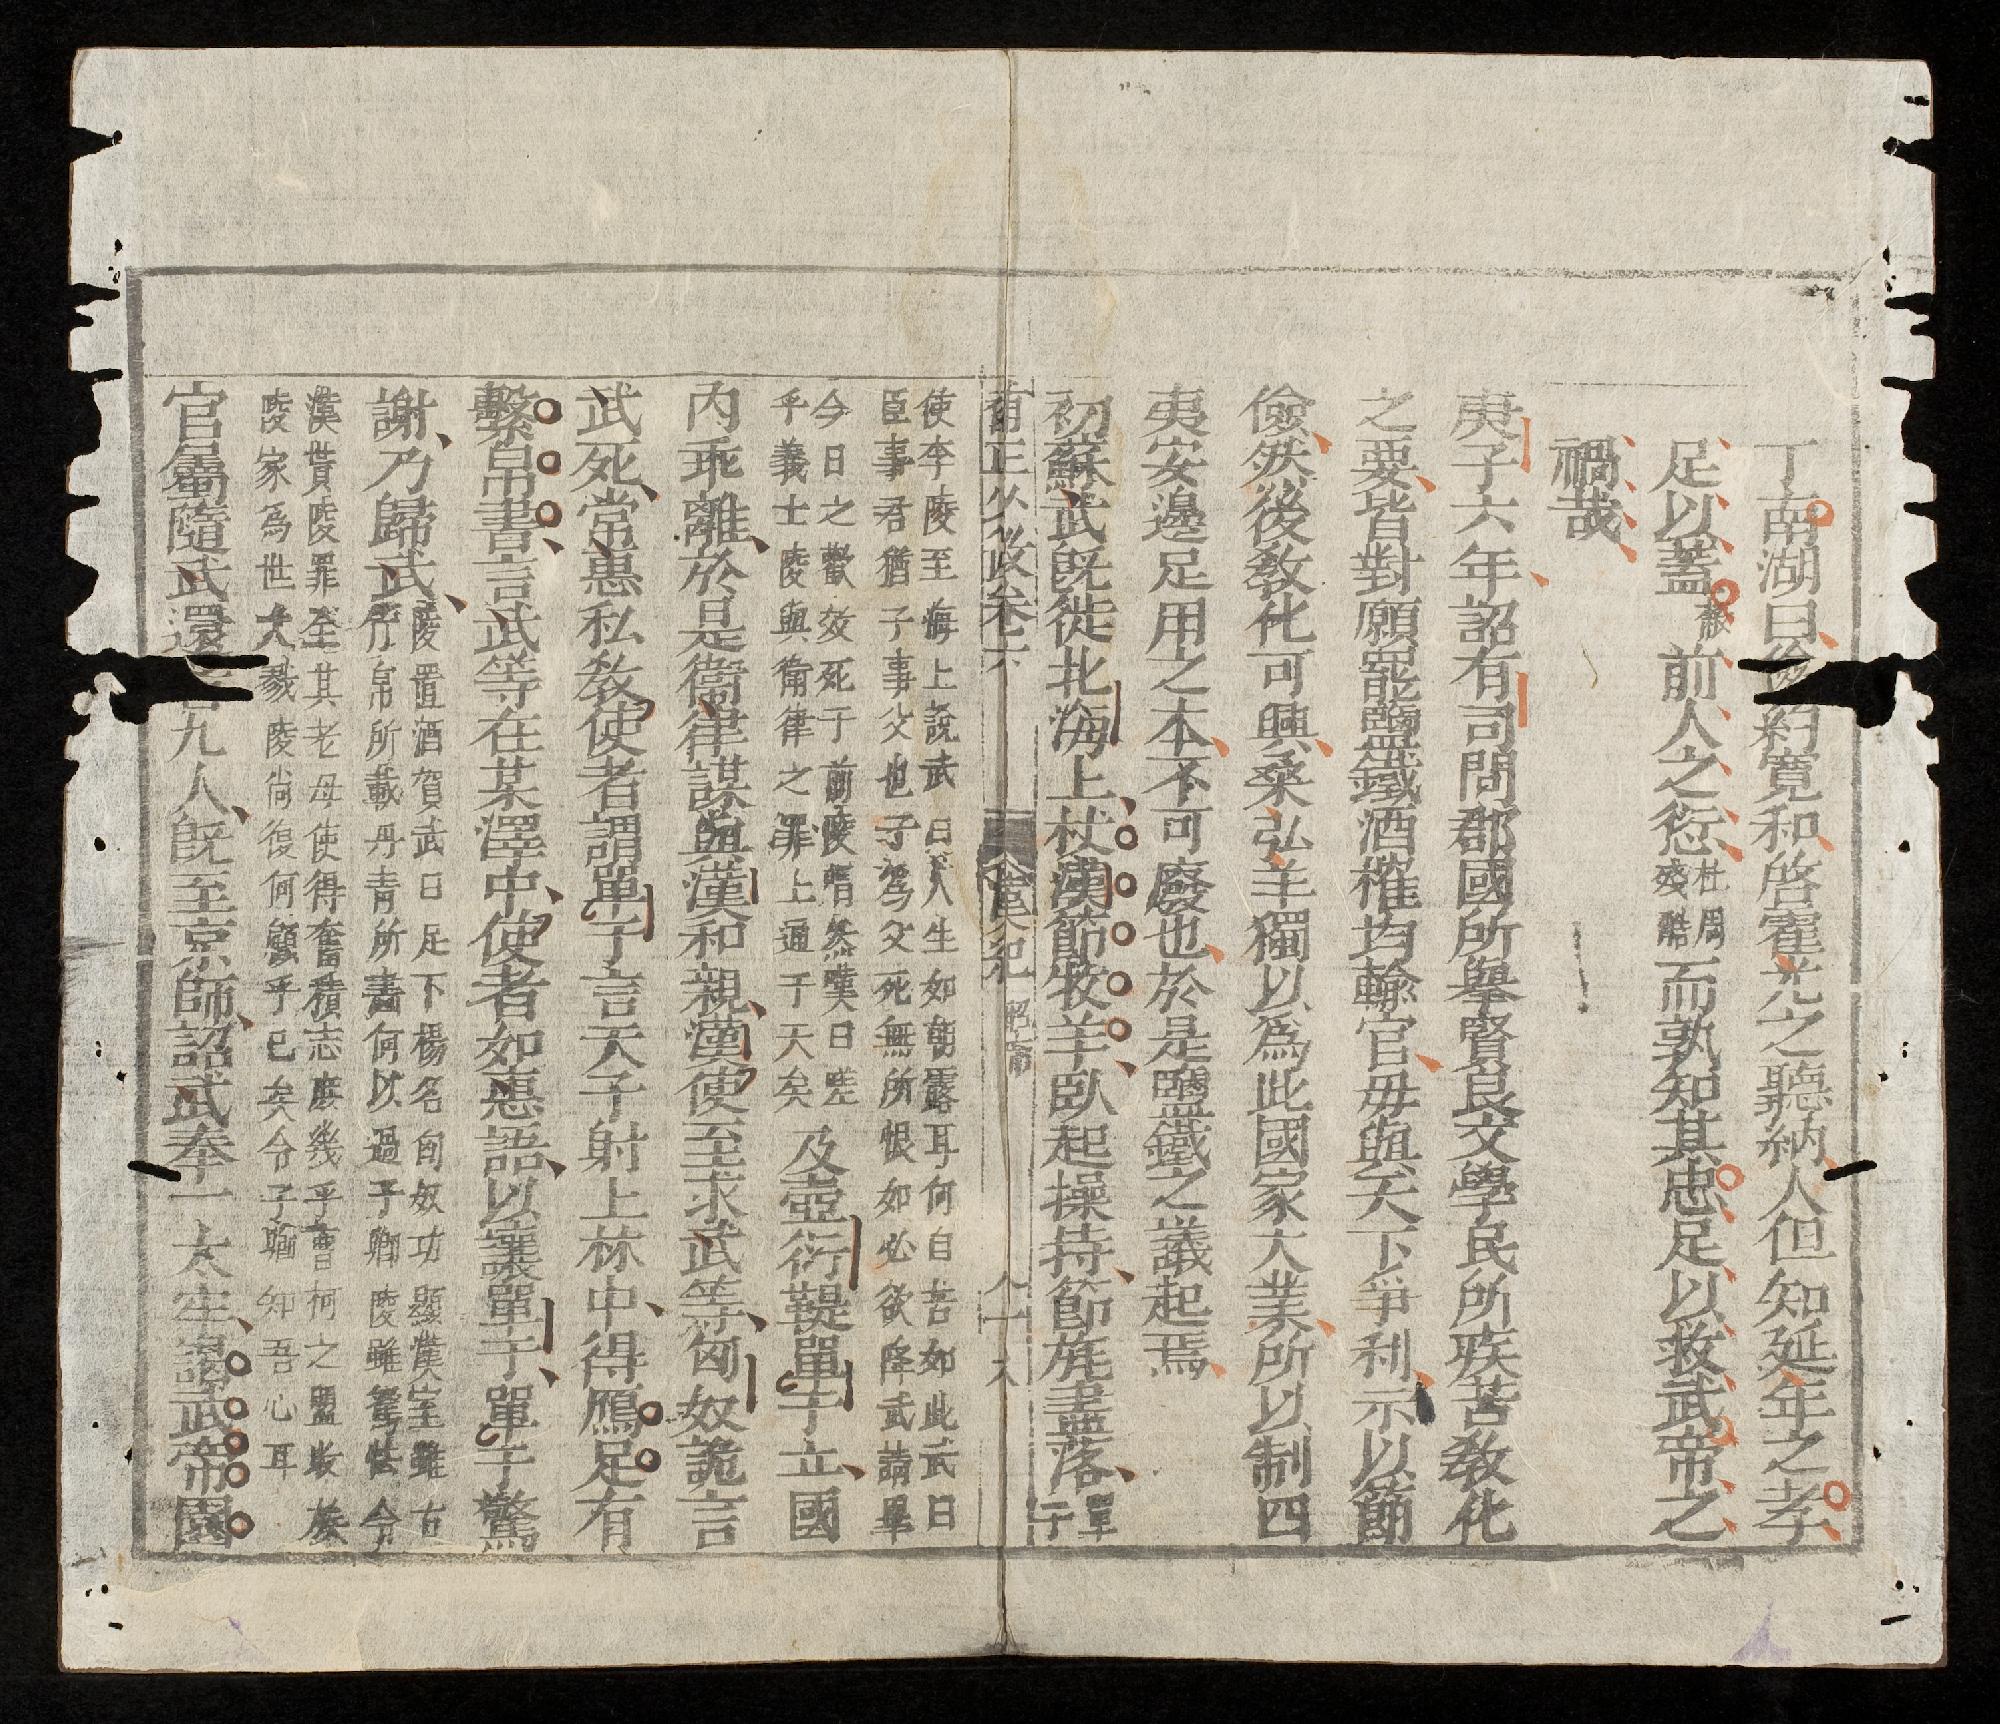 丁南湖曰儉約寬和啓霍光之聽納人但知延年之孝
足以蓋前人之愆杜周殘酷而孰知其忠足以救武帝之
禍哉
庚子六年詔有司問郡國所舉賢良文學民所疾苦教化
之要皆對願罷鹽鐵酒榷均輸官毋與天下爭利示以節
儉然後教化可興桑弘羊獨以爲此國家大業所以制四
夷安邊足用之本不可廢也於是鹽鐵之議起焉
初蘇武既徙北海上杖漢節牧羊臥起操持節旄盡落單于
使李陵至海上說武曰人生如朝露耳何自苦如此武曰
臣事君猶子事父也子爲父死無所恨如必欲降武請畢
今日之歡效死于前陵喟然嘆曰嗟
乎義士陵與衛律之罪上通于天矣及壺衍鞮單于立國
內乖離於是衛律謀與漢和親漢使至求武等匈奴詭言
武死常惠私教使者謂單于言天子射上林中得鴈足有
繫帛書言武等在某澤中使者如惠語以讓單于單于驚
謝乃歸武陵置酒賀武曰足下揚名匈奴功顯漢室雖古
竹帛所載丹青所畫何以過子卿陵雖駑怯令
漢貰陵罪全其老母使得奮積志庶幾乎曹柯之盟收族
陵家爲世大戮陵尚復何顧乎已矣令子卿知吾心耳
官屬隨武還者九人既至京師詔武奉一太牢謁武帝園